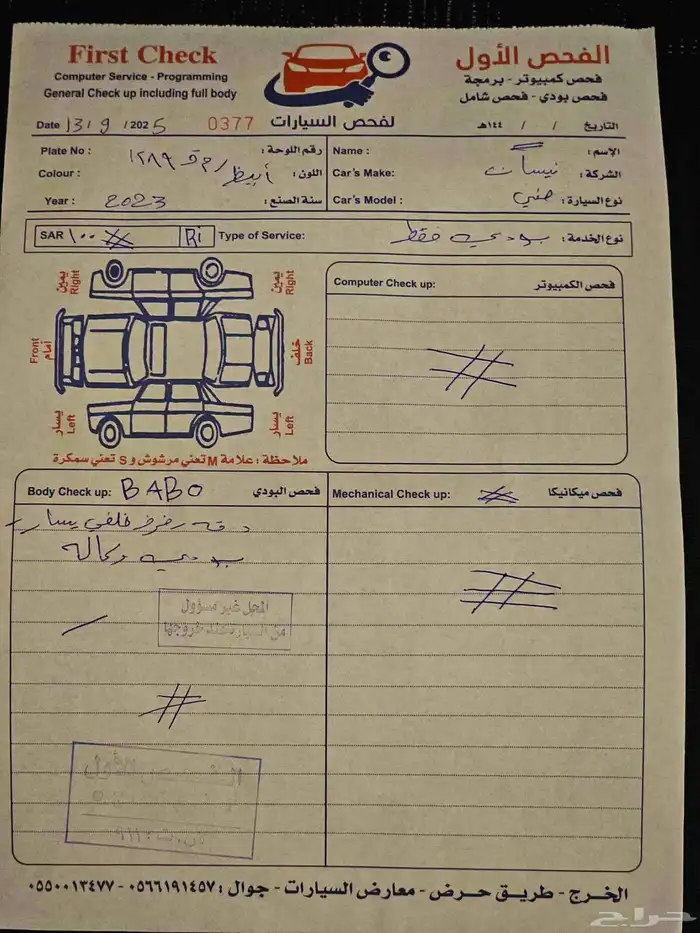 First Check
الفحص الأول
Computer Service - Programming
فحص كمبيوتر - برمجة
General Check up including full body
فحص بودي - فحص شامل
لفحص السيارات
Date 13/9/2025
0377
التاريخ / / ١٤٤هـ
Plate No : ١٢٨٩ رقم اللوحة :
Name : الإسم :
Colour : أبيظ اللون :
Car's Make: نيسان الشركة :
Year : 2023 سنة الصنع :
Car's Model : نوع السيارة :
SAR ١٠٠
Type of Service: بودي فقط نوع الخدمة :
يمين
Right
يمين
Right
Front
أمام
خلف
Back
يسار
Left
يسار
Left
ملاحظة : علامة M تعني مرشوش و S تعني سمكرة
Computer Check up: فحص الكمبيوتر
Body Check up: BABO فحص البودي
دقه رفرف خلفي يسار
بودي وكاله
المحل غير مسؤول
من السيارة عند خروجها
Mechanical Check up: فحص ميكانيكا
الخرج - طريق حرض - معارض السيارات - جوال : ٠٥٦٦١٩١٤٥٧ - ٠٥٥٠٠١٣٤٧٧
حراج